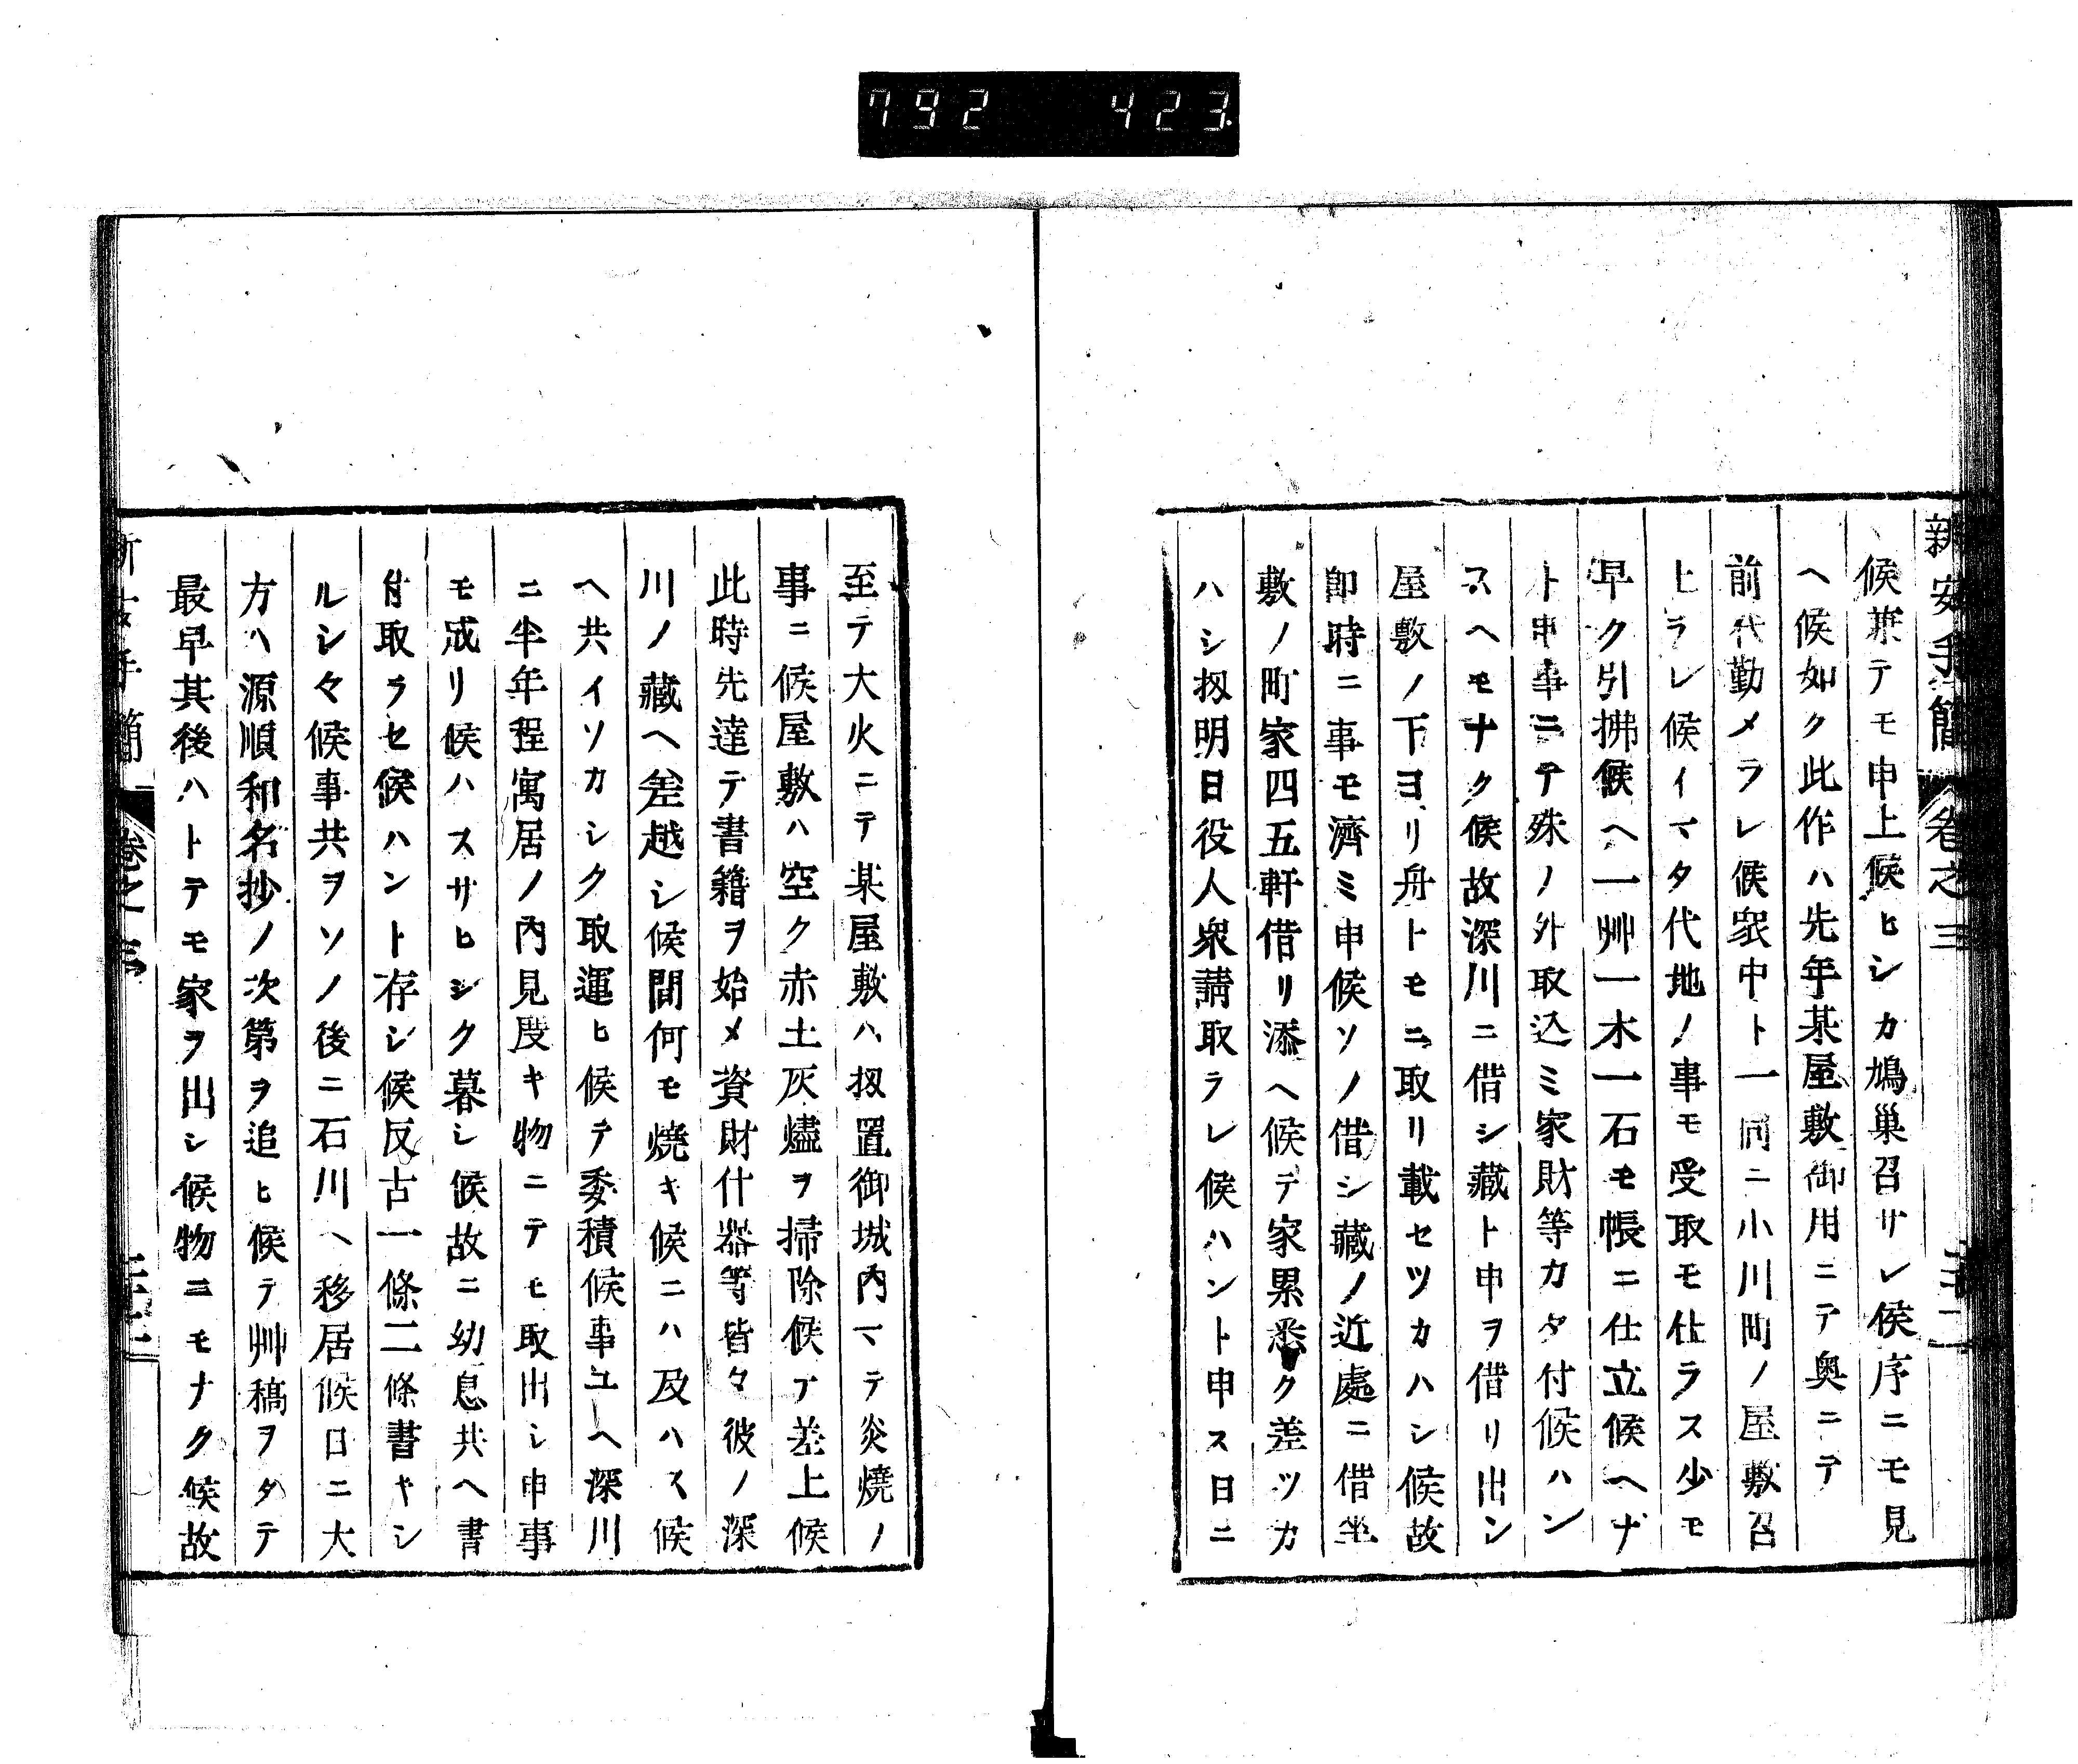 792 423
新安手簡 卷之三
候兼テモ申上候ヒシカ鳩巢召サレ候序ニモ見
ヘ候如ク此作ハ先年某屋敷御用ニテ奥ニテ
前代勤メラレ候衆中ト一同ニ小川町ノ屋敷召
上ラレ候イマタ代地ノ事モ受取モ仕ラス少モ
早ク引拂候ヘ一艸一木一石モ帳ニ仕立候ヘナ
ト申事ニテ殊ノ外取込ミ家財等カタ付候ハン
スヘモナク候故深川ニ借シ藏ト申ヲ借リ出シ
屋敷ノ下ヨリ舟トモニ取リ載セツカハシ候故
卽時ニ事モ濟ミ申候ソノ借シ藏ノ近處ニ借坐
敷ノ町家四五軒借リ添ヘ候テ家累悉ク差ツカ
ハシ扨明日役人衆請取ラレ候ハント申ス日ニ
至テ大火ニテ某屋敷ハ扨置御城内マテ炎燒ノ
事ニ候屋敷ハ空ク赤土灰燼ヲ掃除候テ差上候
此時先達テ書籍ヲ始メ資財什器等皆々彼ノ深
川ノ藏ヘ差越シ候間何モ燒キ候ニハ及ハス候
ヘ共イソカシク取運ヒ候テ委積候事ユヘ深川
ニ半年程寓居ノ内見度キ物ニテモ取出シ申事
モ成リ候ハスサヒシク暮シ候故ニ幼息共ヘ書
付取ラセ候ハント存シ候反古一條二條書キシ
ルシ々候事共ヲソノ後ニ石川ヘ移居候口ニ大
方ハ源順和名抄ノ次第ヲ追ヒ候テ艸稿ヲタテ
最早其後ハトテモ家ヲ出シ候物ニモナク候故
新安手簡 卷之三